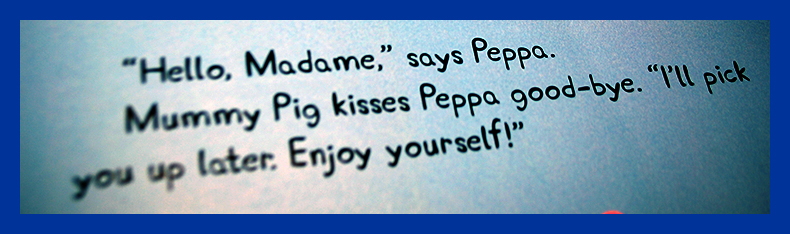 “Hello, Madame,” says Peppa.
Mummy Pig kisses Peppa good-bye. “I’ll pick
you up later. Enjoy yourself!”